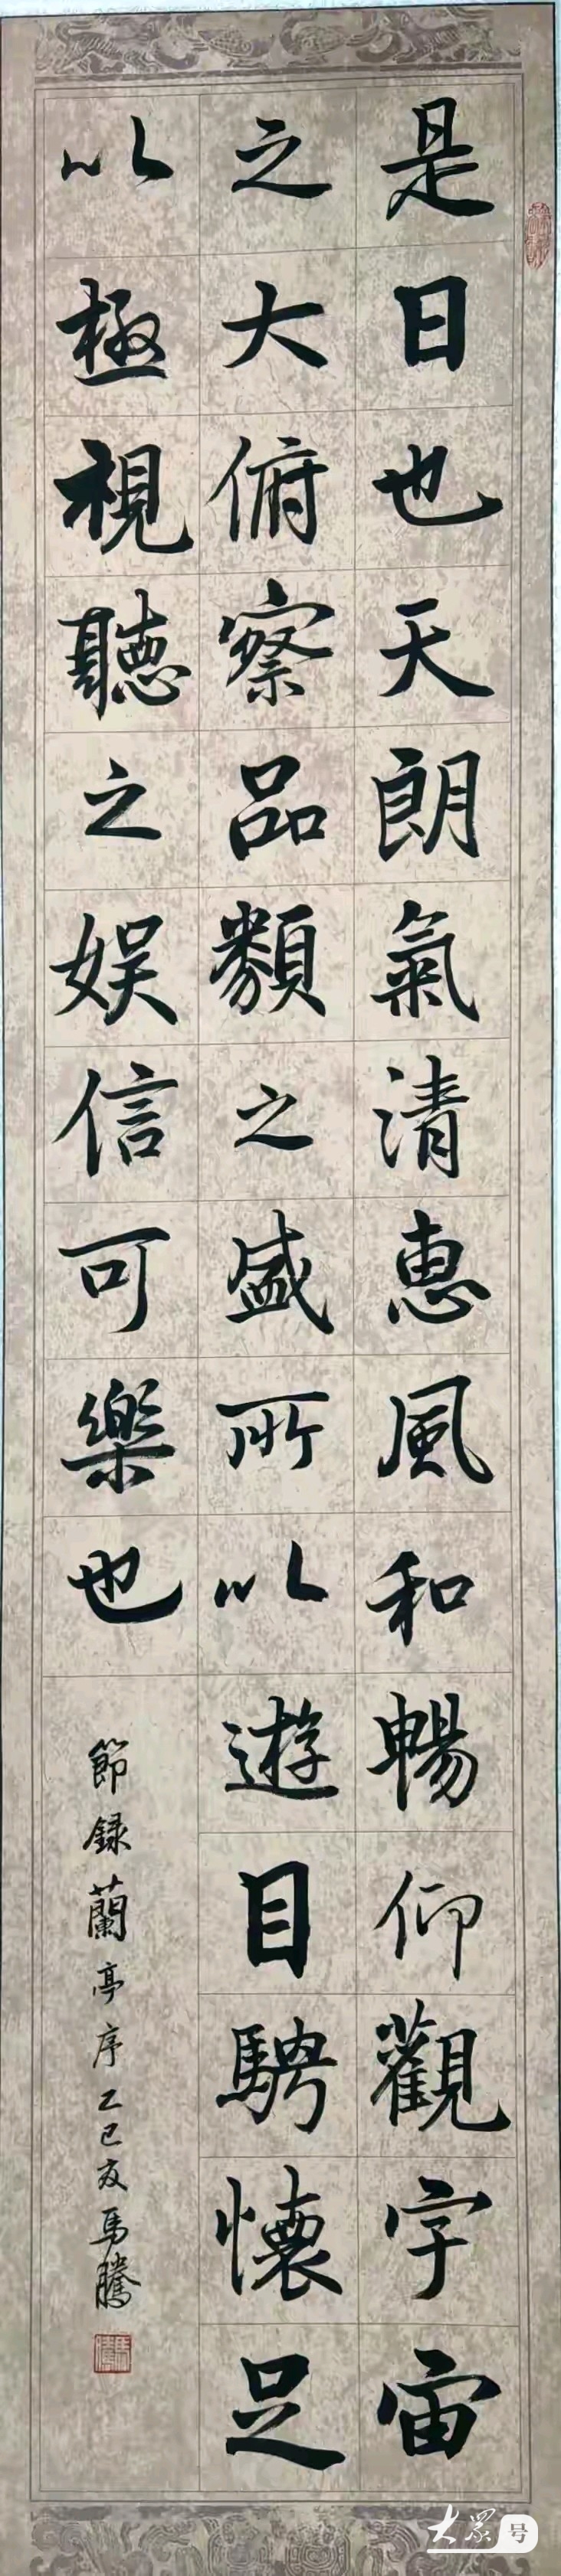 是日也天朗氣清惠風和暢仰觀宇宙
之大俯察品類之盛所以遊目騁懷足
以極視聽之娛信可樂也
節録蘭亭序乙巳夏馬騰
大眾号